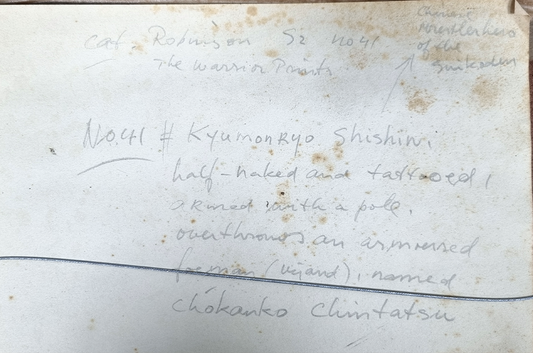 Chinese
Wrestler hero
of the
Suikoden
cat. Robinson S2 no 41
The Warrior Prints
No.41 # Kyumonryo Shishin,
half-naked and tattooed,
armed with a pole,
overthrows an armoured
foeman (brigand), named
Chōkanko Chintatsu